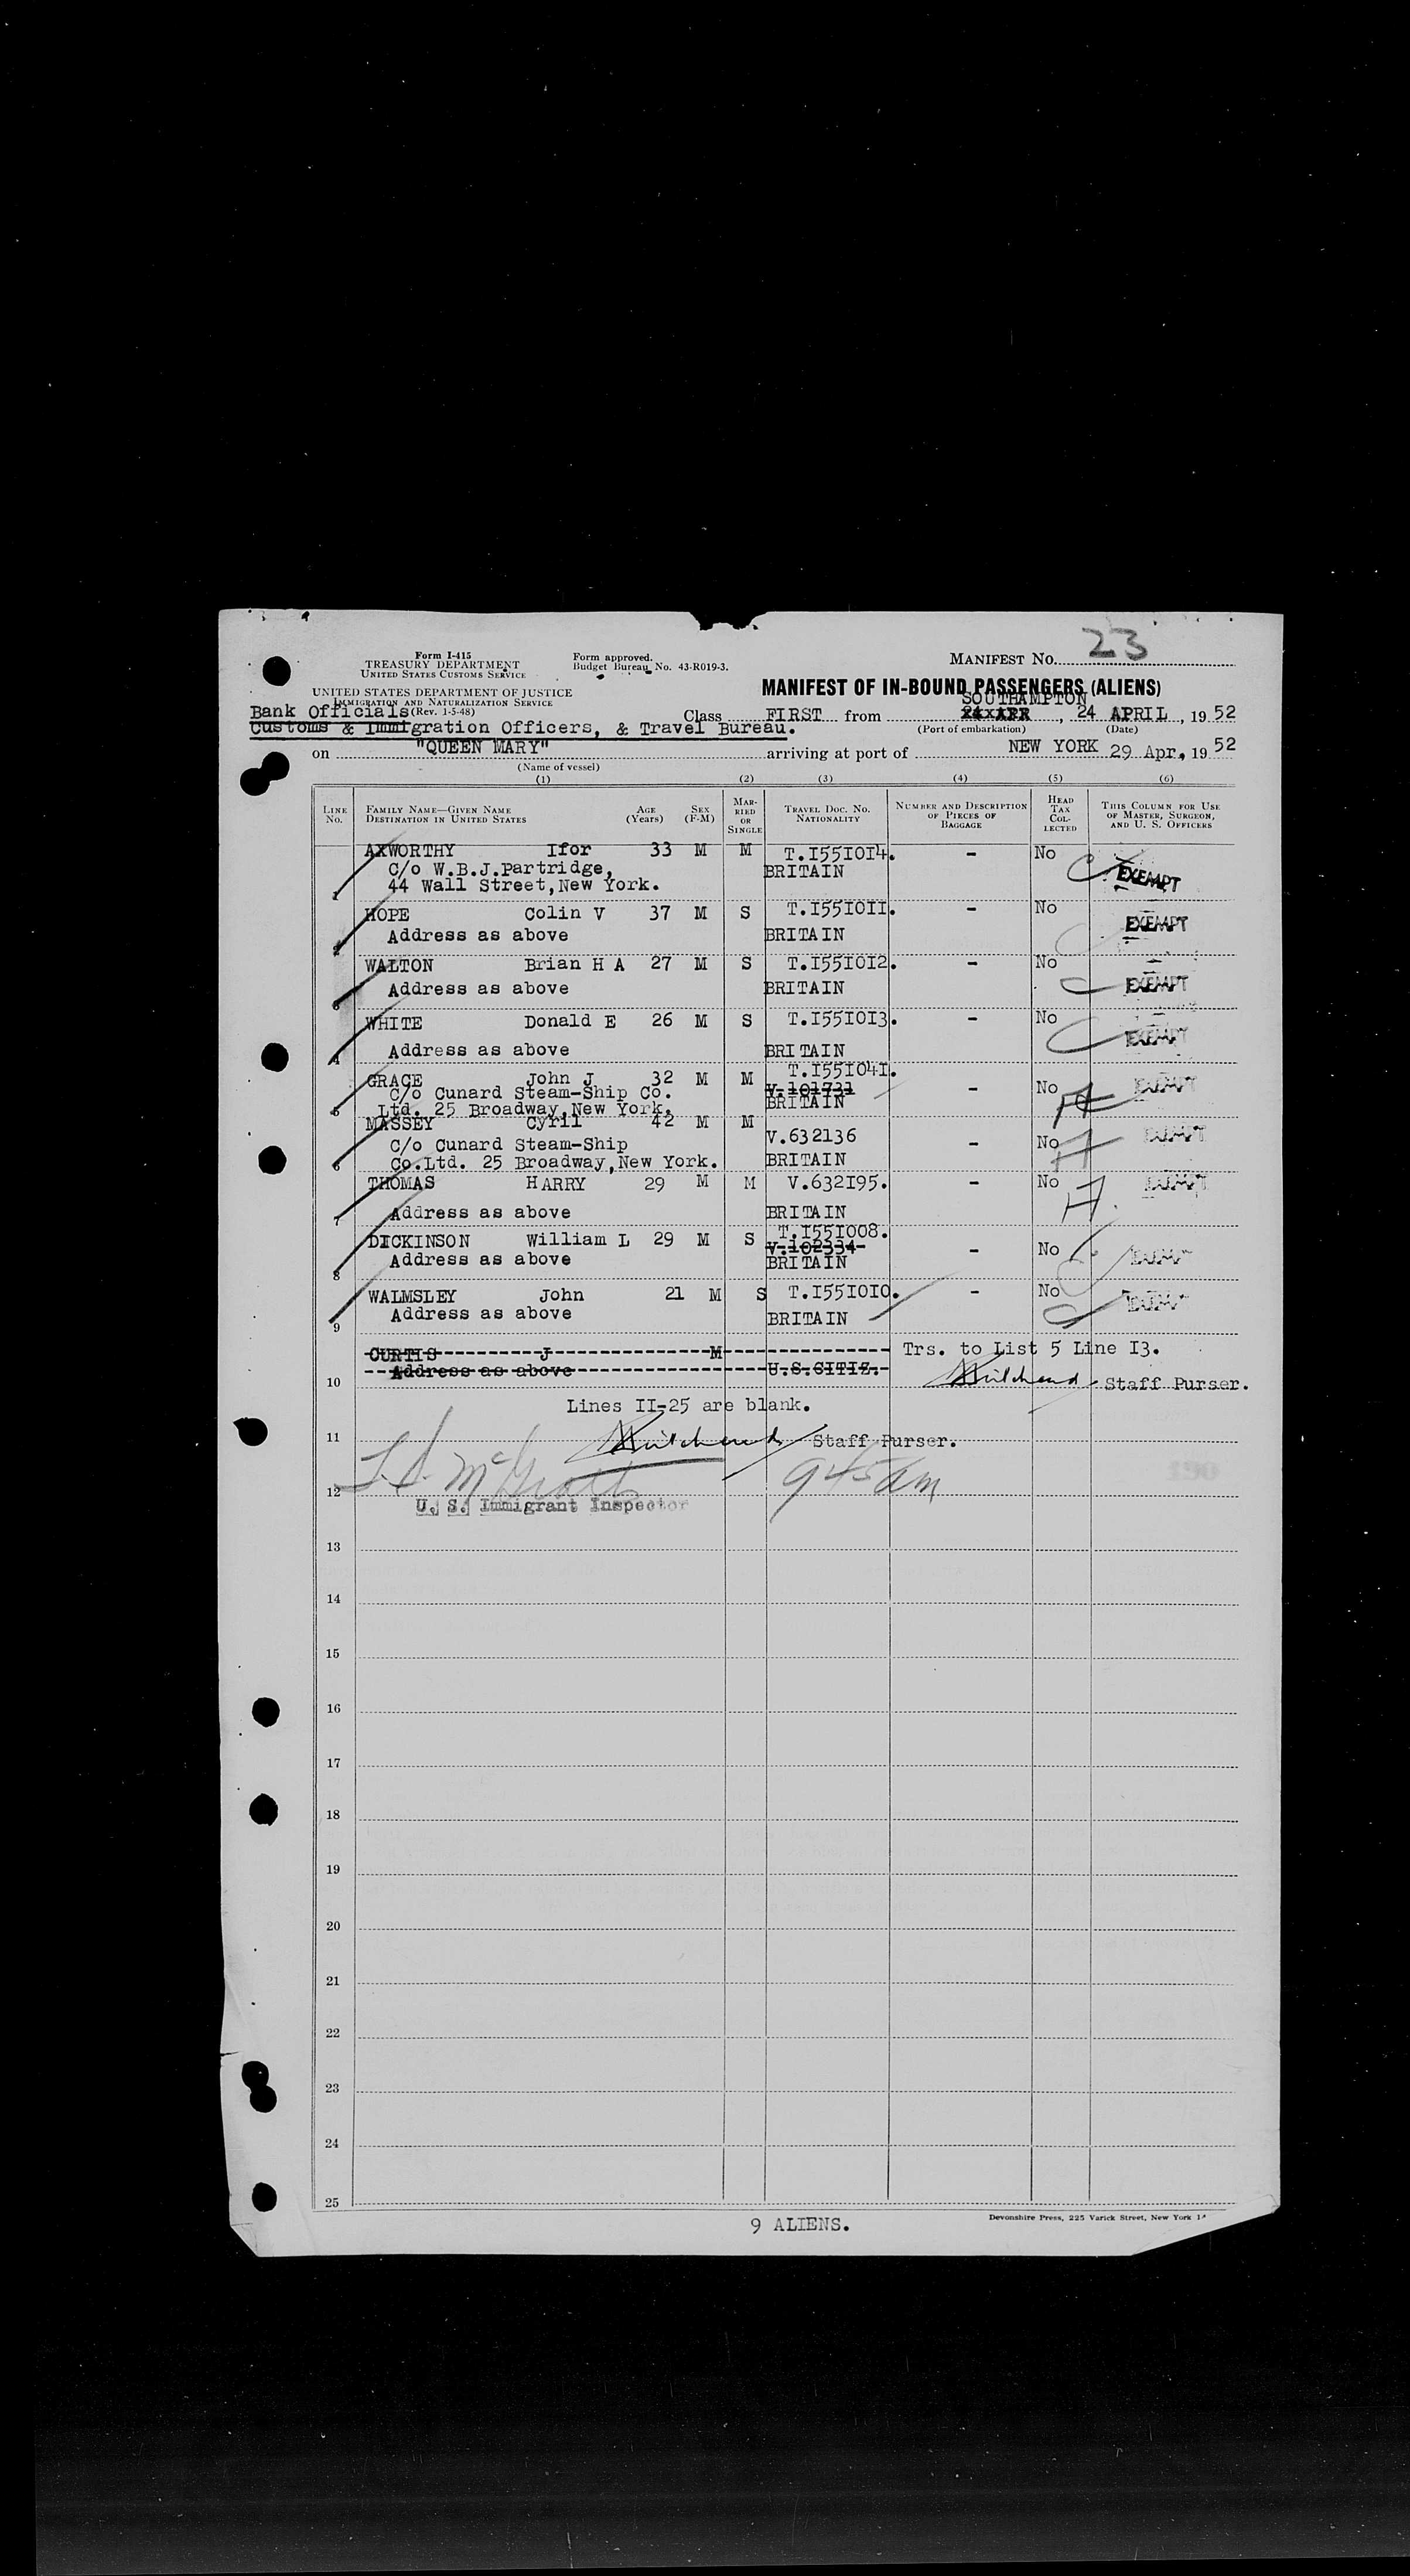 Form I-415
TREASURY DEPARTMENT
UNITED STATES CUSTOMS SERVICE
Form approved.
Budget Bureau No. 43-R019-3.
MANIFEST No. 23
UNITED STATES DEPARTMENT OF JUSTICE
IMMIGRATION AND NATURALIZATION SERVICE
(Rev. 1-5-48)
MANIFEST OF IN-BOUND PASSENGERS (ALIENS)
Bank Officials
Customs & Immigration Officers, & Travel Bureau.
Class FIRST from SOUTHAMPTON, 24 APRIL, 1952
(Port of embarkation) (Date)
on "QUEEN MARY" arriving at port of NEW YORK 29 Apr., 1952
(Name of vessel)
(1) (2) (3) (4) (5) (6)
LINE No. FAMILY NAME—GIVEN NAME DESTINATION IN UNITED STATES AGE (Years) SEX (F-M) MARRIED OR SINGLE TRAVEL DOC. No. NATIONALITY NUMBER AND DESCRIPTION OF PIECES OF BAGGAGE HEAD TAX COLLECTED THIS COLUMN FOR USE OF MASTER, SURGEON, AND U. S. OFFICERS
AXWORTHY Ifor 33 M M T.I55I0I4. - No
C/o W.B.J.Partridge, BRITAIN EXEMPT
1 44 Wall Street,New York.
HOPE Colin V 37 M S T.I55I0II. - No EXEMPT
2 Address as above BRITAIN
WALTON Brian H A 27 M S T.I55I0I2. - No
3 Address as above BRITAIN EXEMPT
WHITE Donald E 26 M S T.I55I0I3. - No EXEMPT
4 Address as above BRITAIN
GRACE John J 32 M M T.I55I04I. - No EXEMPT
C/o Cunard Steam-Ship Co. V.101731
5 Ltd. 25 Broadway,New York. BRITAIN
MASSEY Cyril 42 M M V.632136 - No EXEMPT
C/o Cunard Steam-Ship
6 Co.Ltd. 25 Broadway,New York. BRITAIN
THOMAS HARRY 29 M M V.632I95. - No EXEMPT
7 Address as above BRITAIN
DICKINSON William L 29 M S T.I55I008. - No EXEMPT
V.102334
8 Address as above BRITAIN
WALMSLEY John 21 M S T.I55I0I0. - No EXEMPT
9 Address as above BRITAIN
CURTIS J M Trs. to List 5 Line I3.
Address as above U.S.CITIZ.
10 Staff Purser.
Lines II-25 are blank.
11 Staff Purser.
12 9 45 am
U. S. Immigrant Inspector
13
14
15
16
17
18
19
20
21
22
23
24
25
9 ALIENS.
Devonshire Press, 225 Varick Street, New York 14